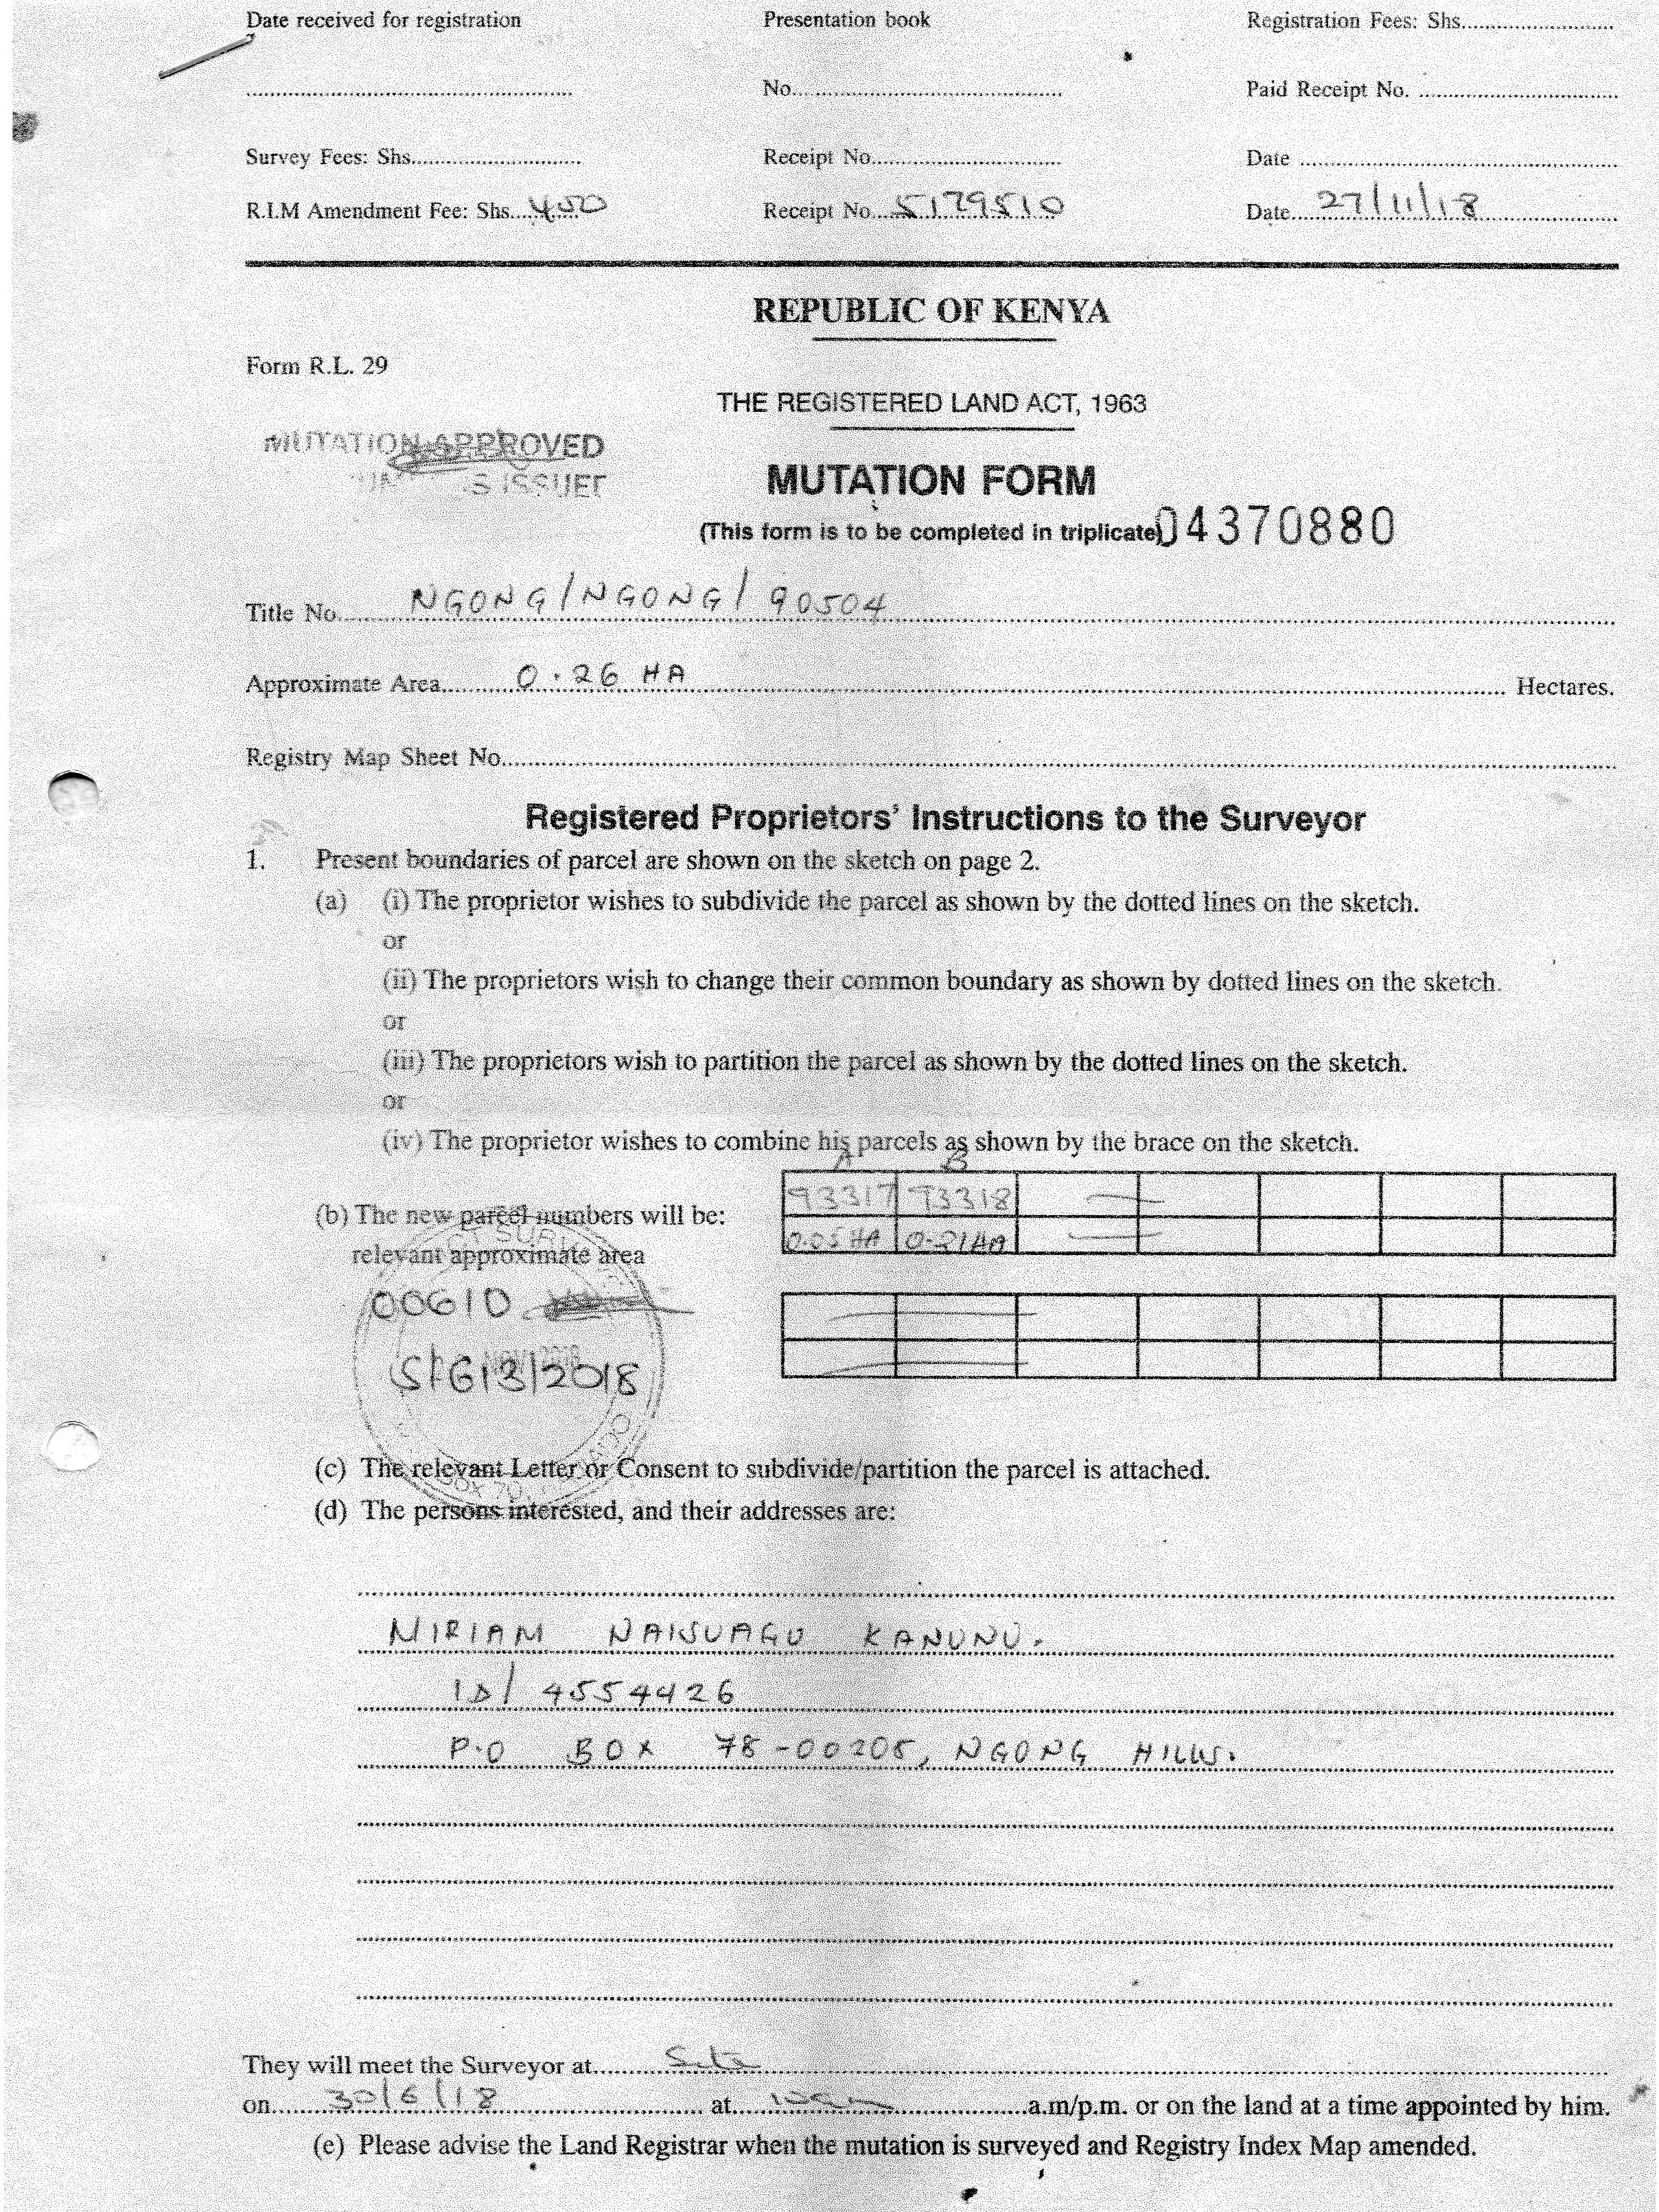 Date received for registration Presentation book Registration Fees: Shs..........
.......... No.......... Paid Receipt No. ..........
Survey Fees: Shs.......... Receipt No.......... Date ..........
R.I.M Amendment Fee: Shs. 450 Receipt No. 5179510 Date. 27/11/18
REPUBLIC OF KENYA
Form R.L. 29
THE REGISTERED LAND ACT, 1963
MUTATION APPROVED
MUTATION FORM
ISSUED
(This form is to be completed in triplicate) 04370880
Title No. NGONG/NGONG/90504
Approximate Area. 0.26 HA Hectares.
Registry Map Sheet No..........
Registered Proprietors' Instructions to the Surveyor
1. Present boundaries of parcel are shown on the sketch on page 2.
(a) (i) The proprietor wishes to subdivide the parcel as shown by the dotted lines on the sketch.
or
(ii) The proprietors wish to change their common boundary as shown by dotted lines on the sketch.
or
(iii) The proprietors wish to partition the parcel as shown by the dotted lines on the sketch.
or
(iv) The proprietor wishes to combine his parcels as shown by the brace on the sketch.
A B
(b) The new parcel numbers will be: 93317 93318
relevant approximate area 0.05 HA 0.21 HA
00610
S/613/2018
(c) The relevant Letter or Consent to subdivide/partition the parcel is attached.
(d) The persons interested, and their addresses are:
MIRIAM NAISUAGU KANUNU.
ID/ 4554426
P.O BOX 78-00208, NGONG HILLS.
They will meet the Surveyor at. Site
on. 30/6/18 at. 10am a.m/p.m. or on the land at a time appointed by him.
(e) Please advise the Land Registrar when the mutation is surveyed and Registry Index Map amended.